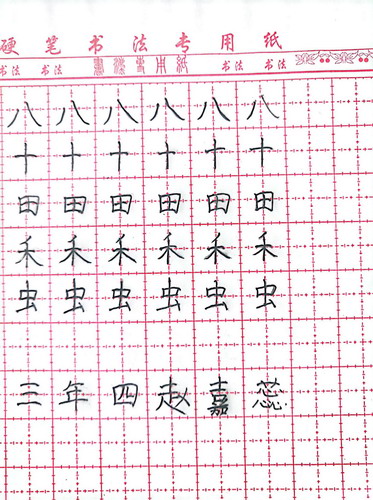 硬笔书法专用纸
书法 书法 书法专用纸 书法 书法
八八八八八八
十十十十十十
田田田田田田
禾禾禾禾禾禾
虫虫虫虫虫虫
三年四赵嘉蕊